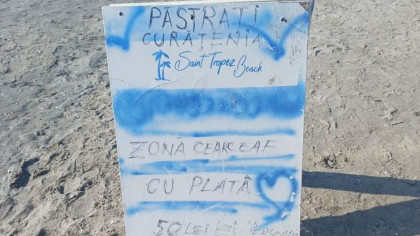 PASTRAȚI
CURATENIA
Saint Tropez Beach
ZONA CEARCEAF
CU PLATĂ
50 LEI